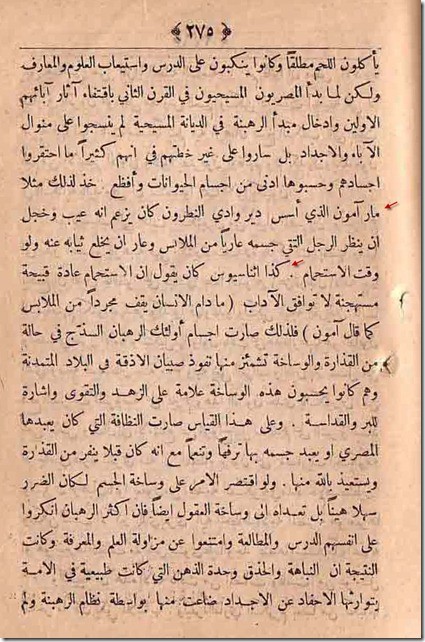 ﴿ ٢٧٥ ﴾
يأكلون اللحم مطلقاً وكانوا ينكبون على الدرس واستيعاب العلوم والمعارف
ولكن لما بدأ المصريون المسيحيون في القرن الثاني باقتفاء آثار آبائهم
الاولين وادخال مبدأ الرهبنة في الديانة المسيحية لم ينسجوا على منوال
الآباء والاجداد بل ساروا على غير خطتهم في انهم كثيراً ما احتقروا
اجسادهم وحسبوها ادنى من اجسام الحيوانات وأفظع خذ لذلك مثلا
مار آمون الذي أسس دير وادي النطرون كان يزعم انه عيب وخجل
ان ينظر الرجل التقي جسمه عارياً من الملابس وعار ان يخلع ثيابه عنه ولو
وقت الاستحمام . كذا اثناسيوس كان يقول ان الاستحمام عادة قبيحة
مستهجنة لا توافق الآداب ( ما دام الانسان يقف مجرداً من الملابس
كما قال آمون ) فلذلك صارت اجسام أولئك الرهبان السذّج في حالة
من القذارة والوساخة تشمئز منها نفوذ صبيان الاذقة في البلاد المتمدنة
وهم كانوا يحسبون هذه الوساخة علامة على الزهد والتقوى واشارة
للبر والقداسة . وعلى هذا القياس صارت النظافة التي كان يعبدها
المصري او يعبد جسمه بها ترفهاً وتنعماً مع انه كان قبلا ينفر من القذارة
ويستعيذ بالله منها . ولو اقتصر الامر على وساخة الجسم لكان الضرر
سهلا هيناً بل تعداه الى وساخة العقول ايضاً فان اكثر الرهبان انكروا
على انفسهم الدرس والمطالعة وامتنعوا عن مزاولة العلم والمعرفة وكانت
النتيجة ان النباهة والحذق وحدة الذهن التي كانت طبيعية في الامة
يتوارثها الاحفاد عن الاجداد ضاعت منها بواسطة نظام الرهبنة ولم